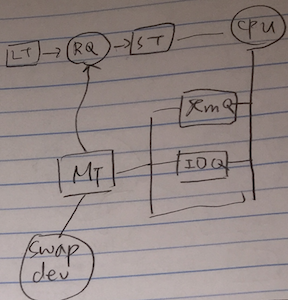 LT → RQ → ST CPU
RmQ
MT IOQ
swap
dev